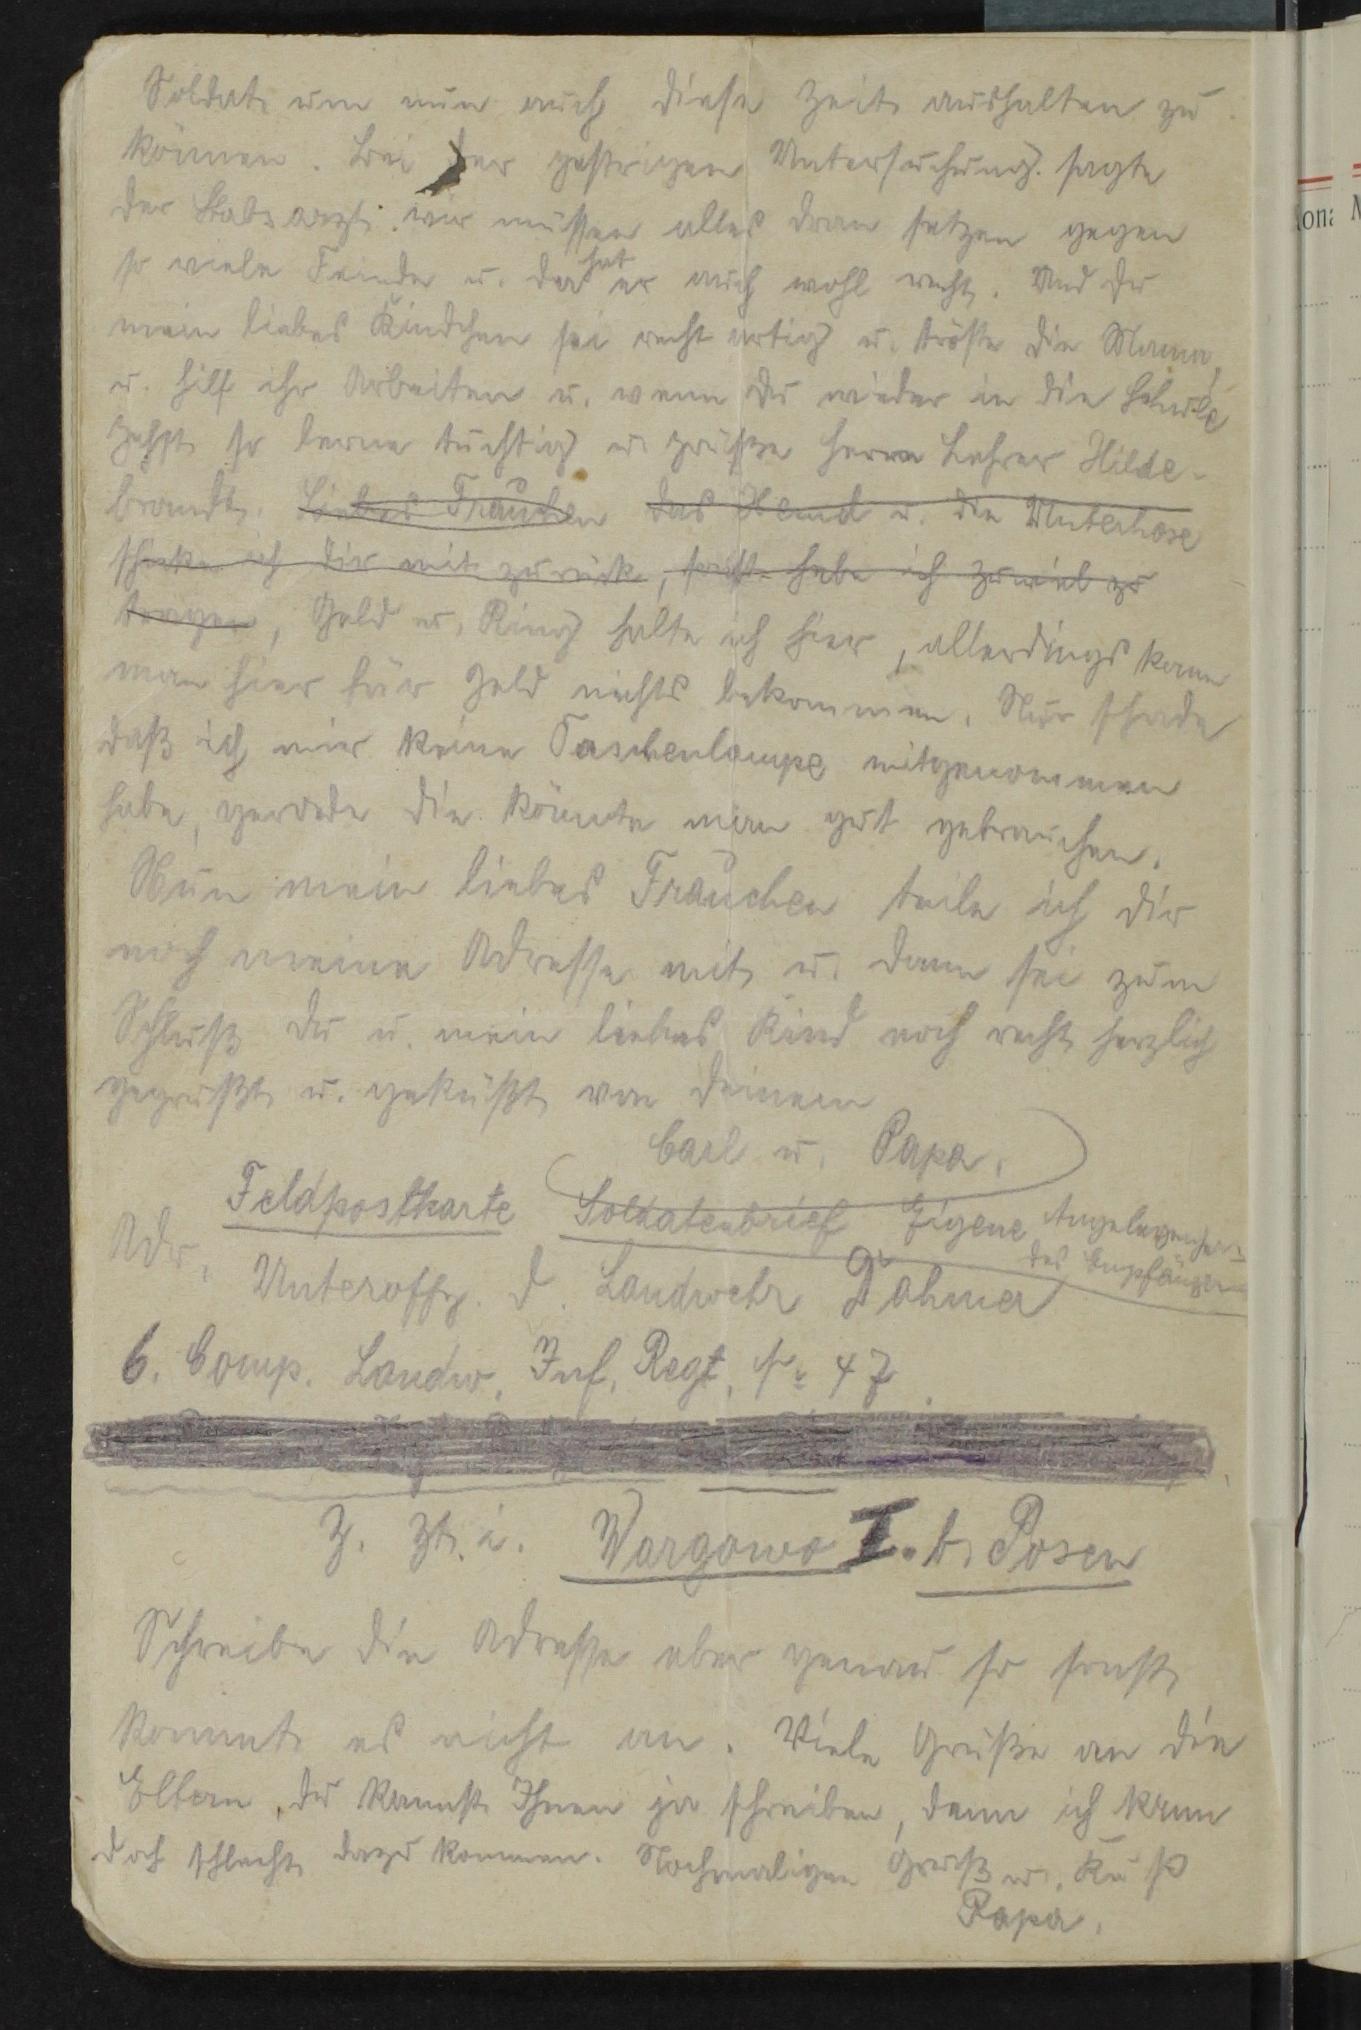 Soldat um nun auch diese Zeit aushalten zu
können. Bei der gestrigen Untersuchung sagte
der Stabsarzt: wir müssen alles dran setzen gegen
so viele Feinde u. da hat er auch wohl recht. Und du
mein liebes Kindchen sei recht artig u. tröste die Mama,
u. hilf ihr Arbeiten u. wenn du wieder in die Schule
gehst so lerne tüchtig u. grüße Herrn Lehrer Hilde-
brandt. Liebes Frauchen das Hemd u. die Unterhose
schicke ich dir mit zurück, sonst habe ich zuviel zu
tragen, Geld u. Ring halte ich hier, allerdings kann
man hier für Geld nichts bekommen. Nur schade
daß ich mir keine Taschenlampe mitgenommen
habe, gerade die könnte man gut gebrauchen.
Nun mein liebes Frauchen teile ich dir
noch meine Adresse mit u. dann sei zum
Schluß du u. mein liebes Kind noch recht herzlich
gegrüßt u. geküßt von deinem
Carl u. Papa.
Feldpostkarte Soldatenbrief Eigene Angelegenheit
des Empfängers
Adr. Unteroffz. d. Landwehr Dahmer
6. Comp. Landw. Inf. Regt. Nr 47
z. Zt. i. Wargowo I. b. Posen
Schreibe die Adresse aber genau so sonst
kommt es nicht an. Viele Grüße an die
Eltern, du kannst Ihnen ja schreiben, denn ich kann
doch schlecht dazu kommen. Nochmaligen Gruß u. Kuß
Papa.